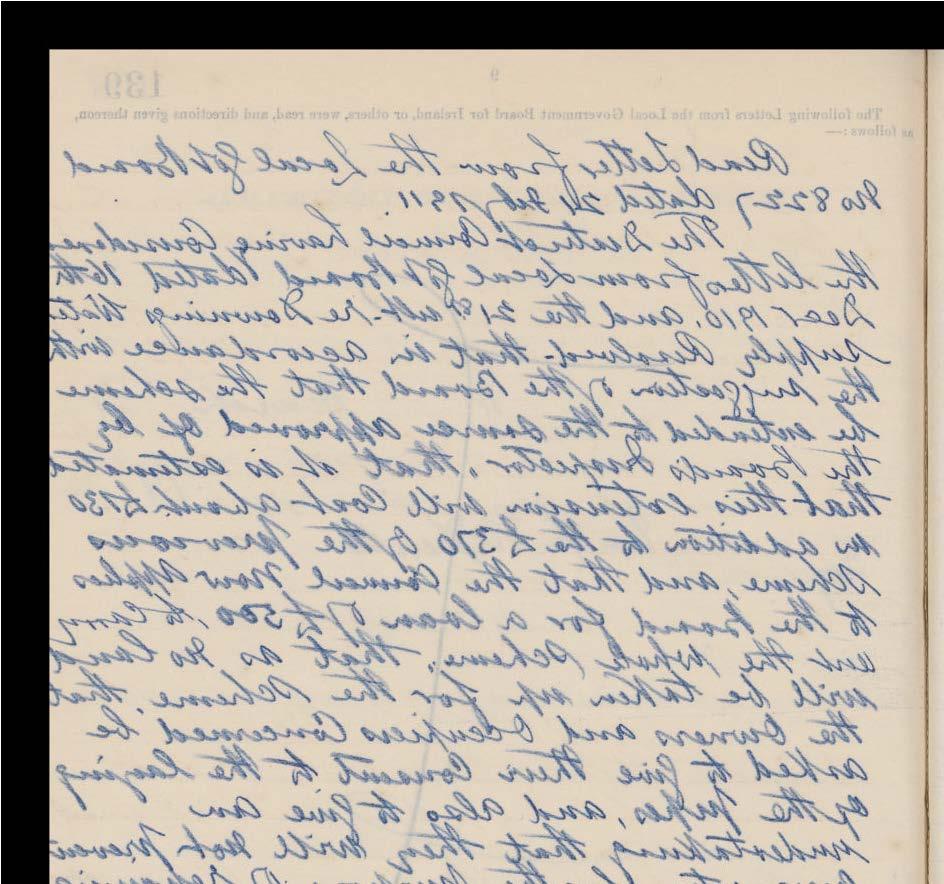 139
9
The following Letters from the Local Government Board for Ireland, or others, were read, and directions given thereon,
as follows:—
Read Letter from the Local Govt Board
No 8227 dated 21 Feby 1911
The District Council having Considered
the letter from Local Govt Board dated 16th
Decr 1910, and the 21st ult. re Downings Water
supply Resolved. that in accordance with
the suggestion of the Board that the scheme
be extended to the source approved of by
the Board's Inspector, that it is estimated
that this extension will cost about £130
in addition to the £370 of the previous
scheme, and that the Council now applies
to the Board for a loan of £500, to carry
out the whole scheme. that as no land
will be taken up for the scheme, that
the Owners and Occupiers Concerned be
asked to give their Consent to the laying
of the pipes, and, also to give an
undertaking that they will not prevent